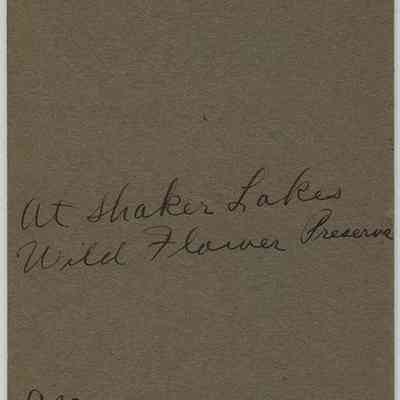 At Shaker Lakes
Wild Flower Preserve